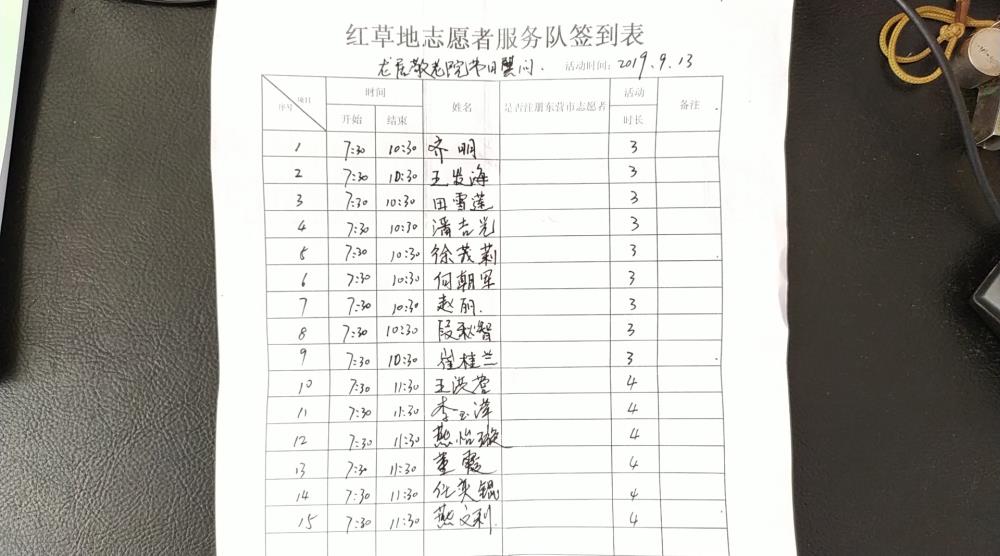 红草地志愿者服务队签到表
龙居敬老院节日慰问. 活动时间: 2019.9.13
序号 项目 时间 开始 结束 姓名 是否注册东营市志愿者 活动时长 备注
1 7:30 10:30 齐明 3
2 7:30 10:30 王发海 3
3 7:30 10:30 田雪莲 3
4 7:30 10:30 潘吉光 3
5 7:30 10:30 徐茂莉 3
6 7:30 10:30 何朝军 3
7 7:30 10:30 赵丽. 3
8 7:30 10:30 段秋智 3
9 7:30 10:30 崔桂兰 3
10 7:30 11:30 王洪营 4
11 7:30 11:30 李玉萍 4
12 7:30 11:30 燕怡璇 4
13 7:30 11:30 董霞 4
14 7:30 11:30 任奕锟 4
15 7:30 11:30 燕文利. 4